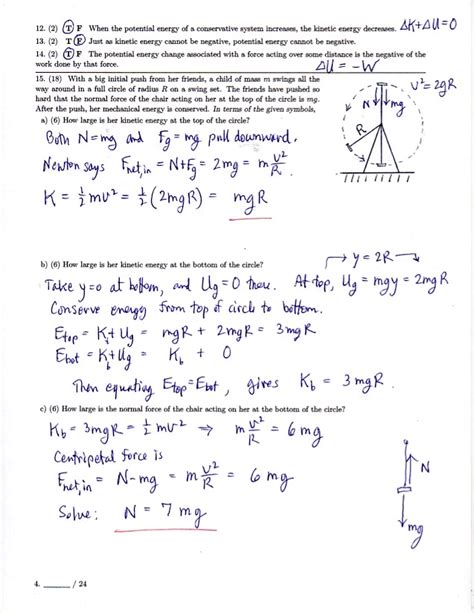 12. (2) T F When the potential energy of a conservative system increases, the kinetic energy decreases. ΔK+ΔU=0
13. (2) T F Just as kinetic energy cannot be negative, potential energy cannot be negative.
14. (2) T F The potential energy change associated with a force acting over some distance is the negative of the
work done by that force. ΔU = -W
15. (18) With a big initial push from her friends, a child of mass m swings all the
way around in a full circle of radius R on a swing set. The friends have pushed so
hard that the normal force of the chair acting on her at the top of the circle is mg.
After the push, her mechanical energy is conserved. In terms of the given symbols,
v² = 2gR
N mg
R
a) (6) How large is her kinetic energy at the top of the circle?
Both N=mg and Fg = mg pull downward.
Newton says Fnet,in = N+Fg = 2mg = m v²/R
K = ½mv² = ½(2mgR) = mgR
b) (6) How large is her kinetic energy at the bottom of the circle?
→ y = 2R
Take y=0 at bottom, and Ug=0 there. At top, Ug = mgy = 2mgR
Conserve energy from top of circle to bottom.
Etop = K+Ug = mgR + 2mgR = 3mgR
Ebot = K+Ug = Kb + 0
Then equating Etop=Ebot, gives Kb = 3mgR.
c) (6) How large is the normal force of the chair acting on her at the bottom of the circle?
Kb = 3mgR = ½mv² ⇒ m v²/R = 6mg
Centripetal force is
Fnet,in = N-mg = m v²/R = 6mg
Solve: N = 7mg
N
mg
4. ______ / 24